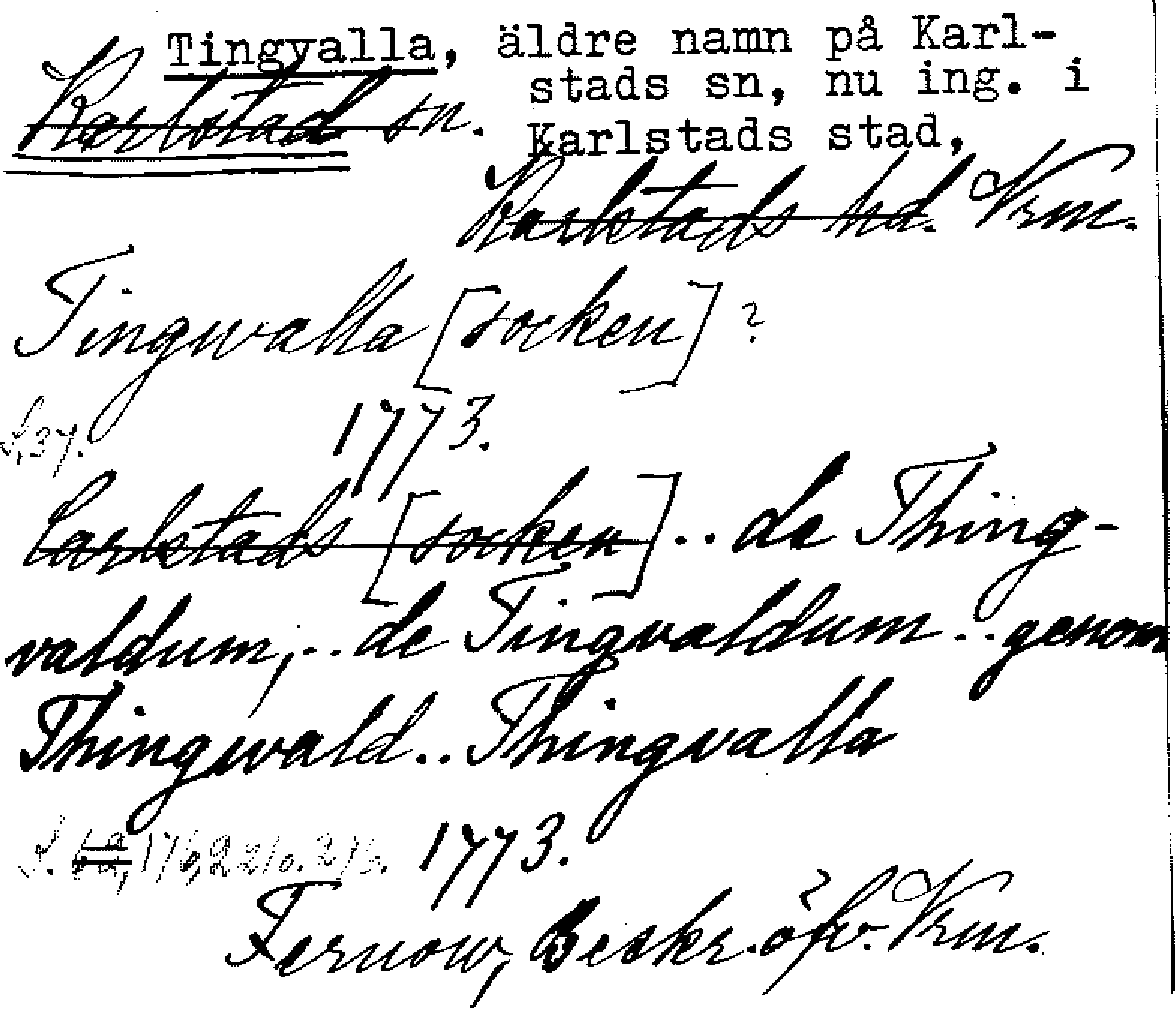 Tingvalla, äldre namn på Karl-
stads sn, nu ing. i
Karlstad sn.
Karlstads stad,
Karlstads hd. Vrm.
Tingwalla [socken]?
S. 37. 1773.
Carlstads [socken] .. de Thing-
valdum, .. de Tingvaldum .. genom
Thingwald .. Thingvalla
S. 176, 1773.
Fernow, Beskr. öfv. Vrm.